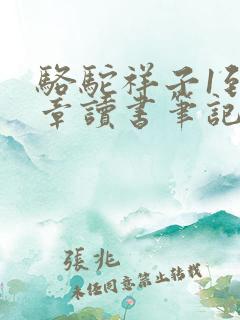 駱駝祥子1到
章讀書筆記
張兆
未經同意禁止轉載